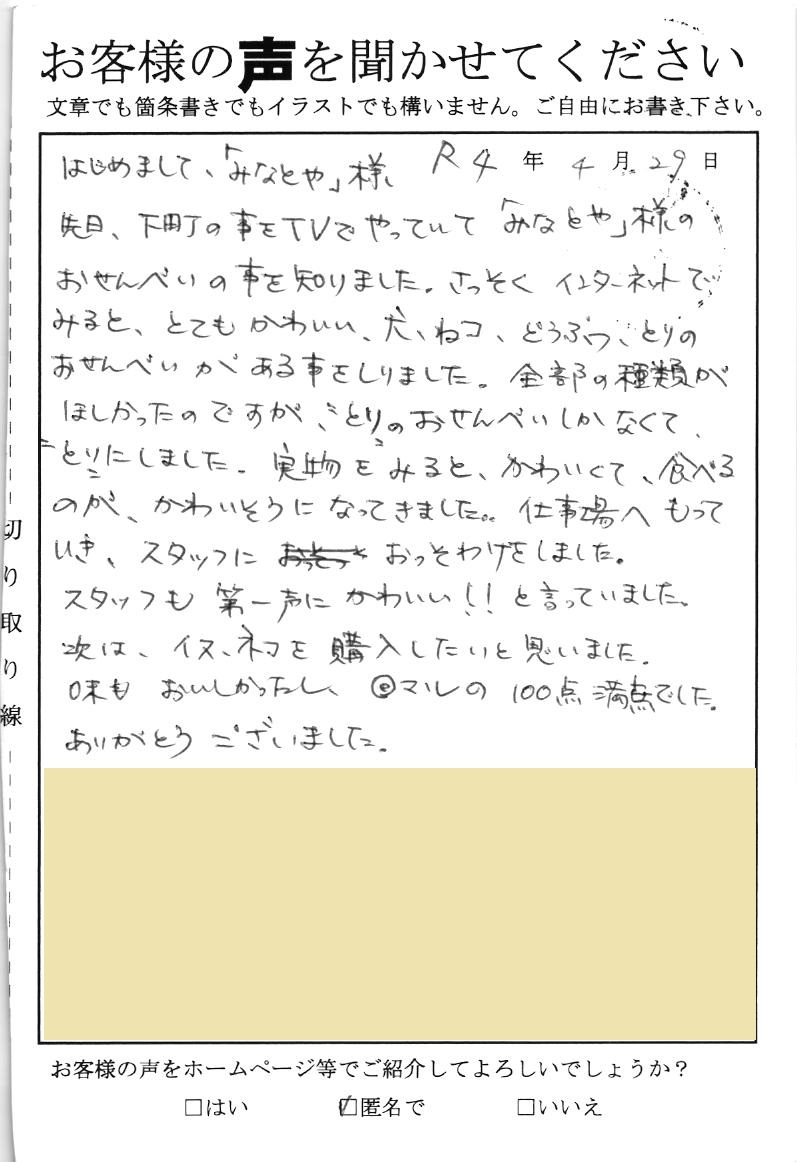 お客様の声を聞かせてください
文章でも箇条書きでもイラストでも構いません。ご自由にお書き下さい。
はじめまして、「みなとや」様、 R4年4月29日
先日、下町の事をTVでやっていて「みなとや」様の
おせんべいの事を知りました。さっそくインターネットで
みると、とてもかわいい、犬、ねコ、どうぶつ、とりの
おせんべいがある事をしりました。全部の種類が
ほしかったのですが、"とり"のおせんべいしかなくて、
"とり"にしました。実物をみると、かわいくて、食べる
のが、かわいそうになってきました。仕事場へもって
いき、スタッフに おっそわけをしました。
スタッフも第一声にかわいい!!と言っていました。
次は、イヌ、ネコを購入したいと思いました。
味もおいしかったし、マルの100点満点でした。
ありがとうございました。
切り取り線
お客様の声をホームページ等でご紹介してよろしいでしょうか？
□はい □匿名で □いいえ